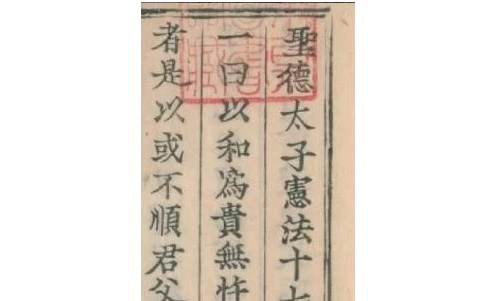 聖德太子憲法十七
一曰以和爲貴無忤
者是以或不順君父